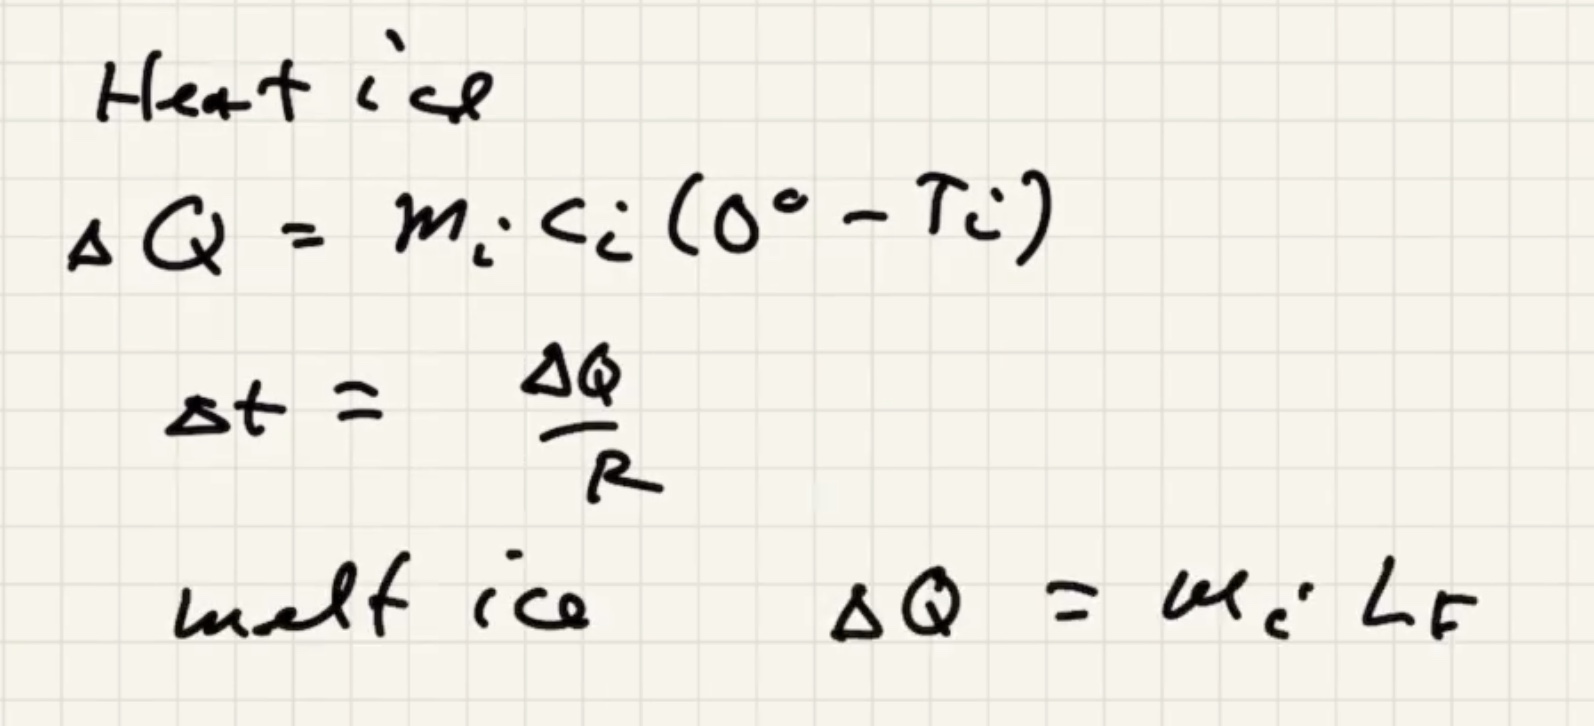 Heat ice
ΔQ = mᵢ cᵢ (0° - Tᵢ)
Δt = ΔQ / R
melt ice ΔQ = mᵢ L_F